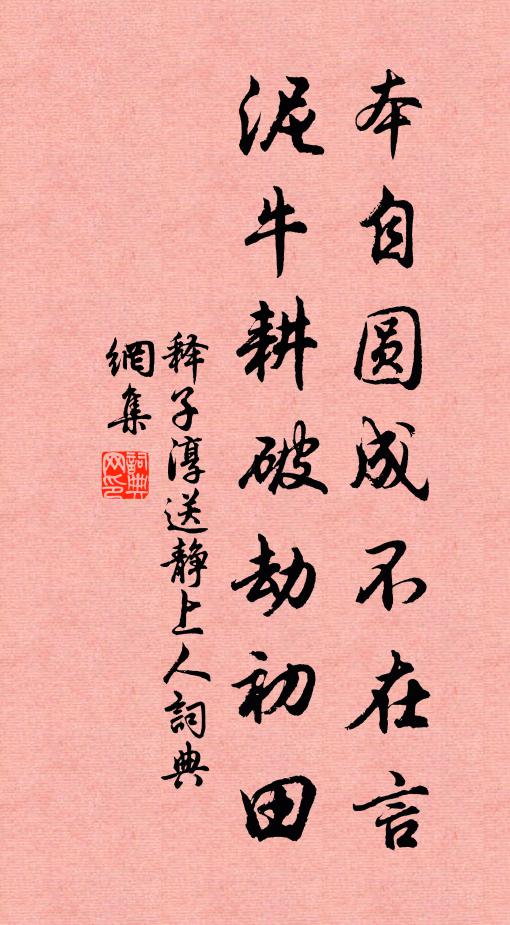 本自圆成不在言
泥牛耕破劫初田
释子淳送静上人詞典
網集
詞典
网印